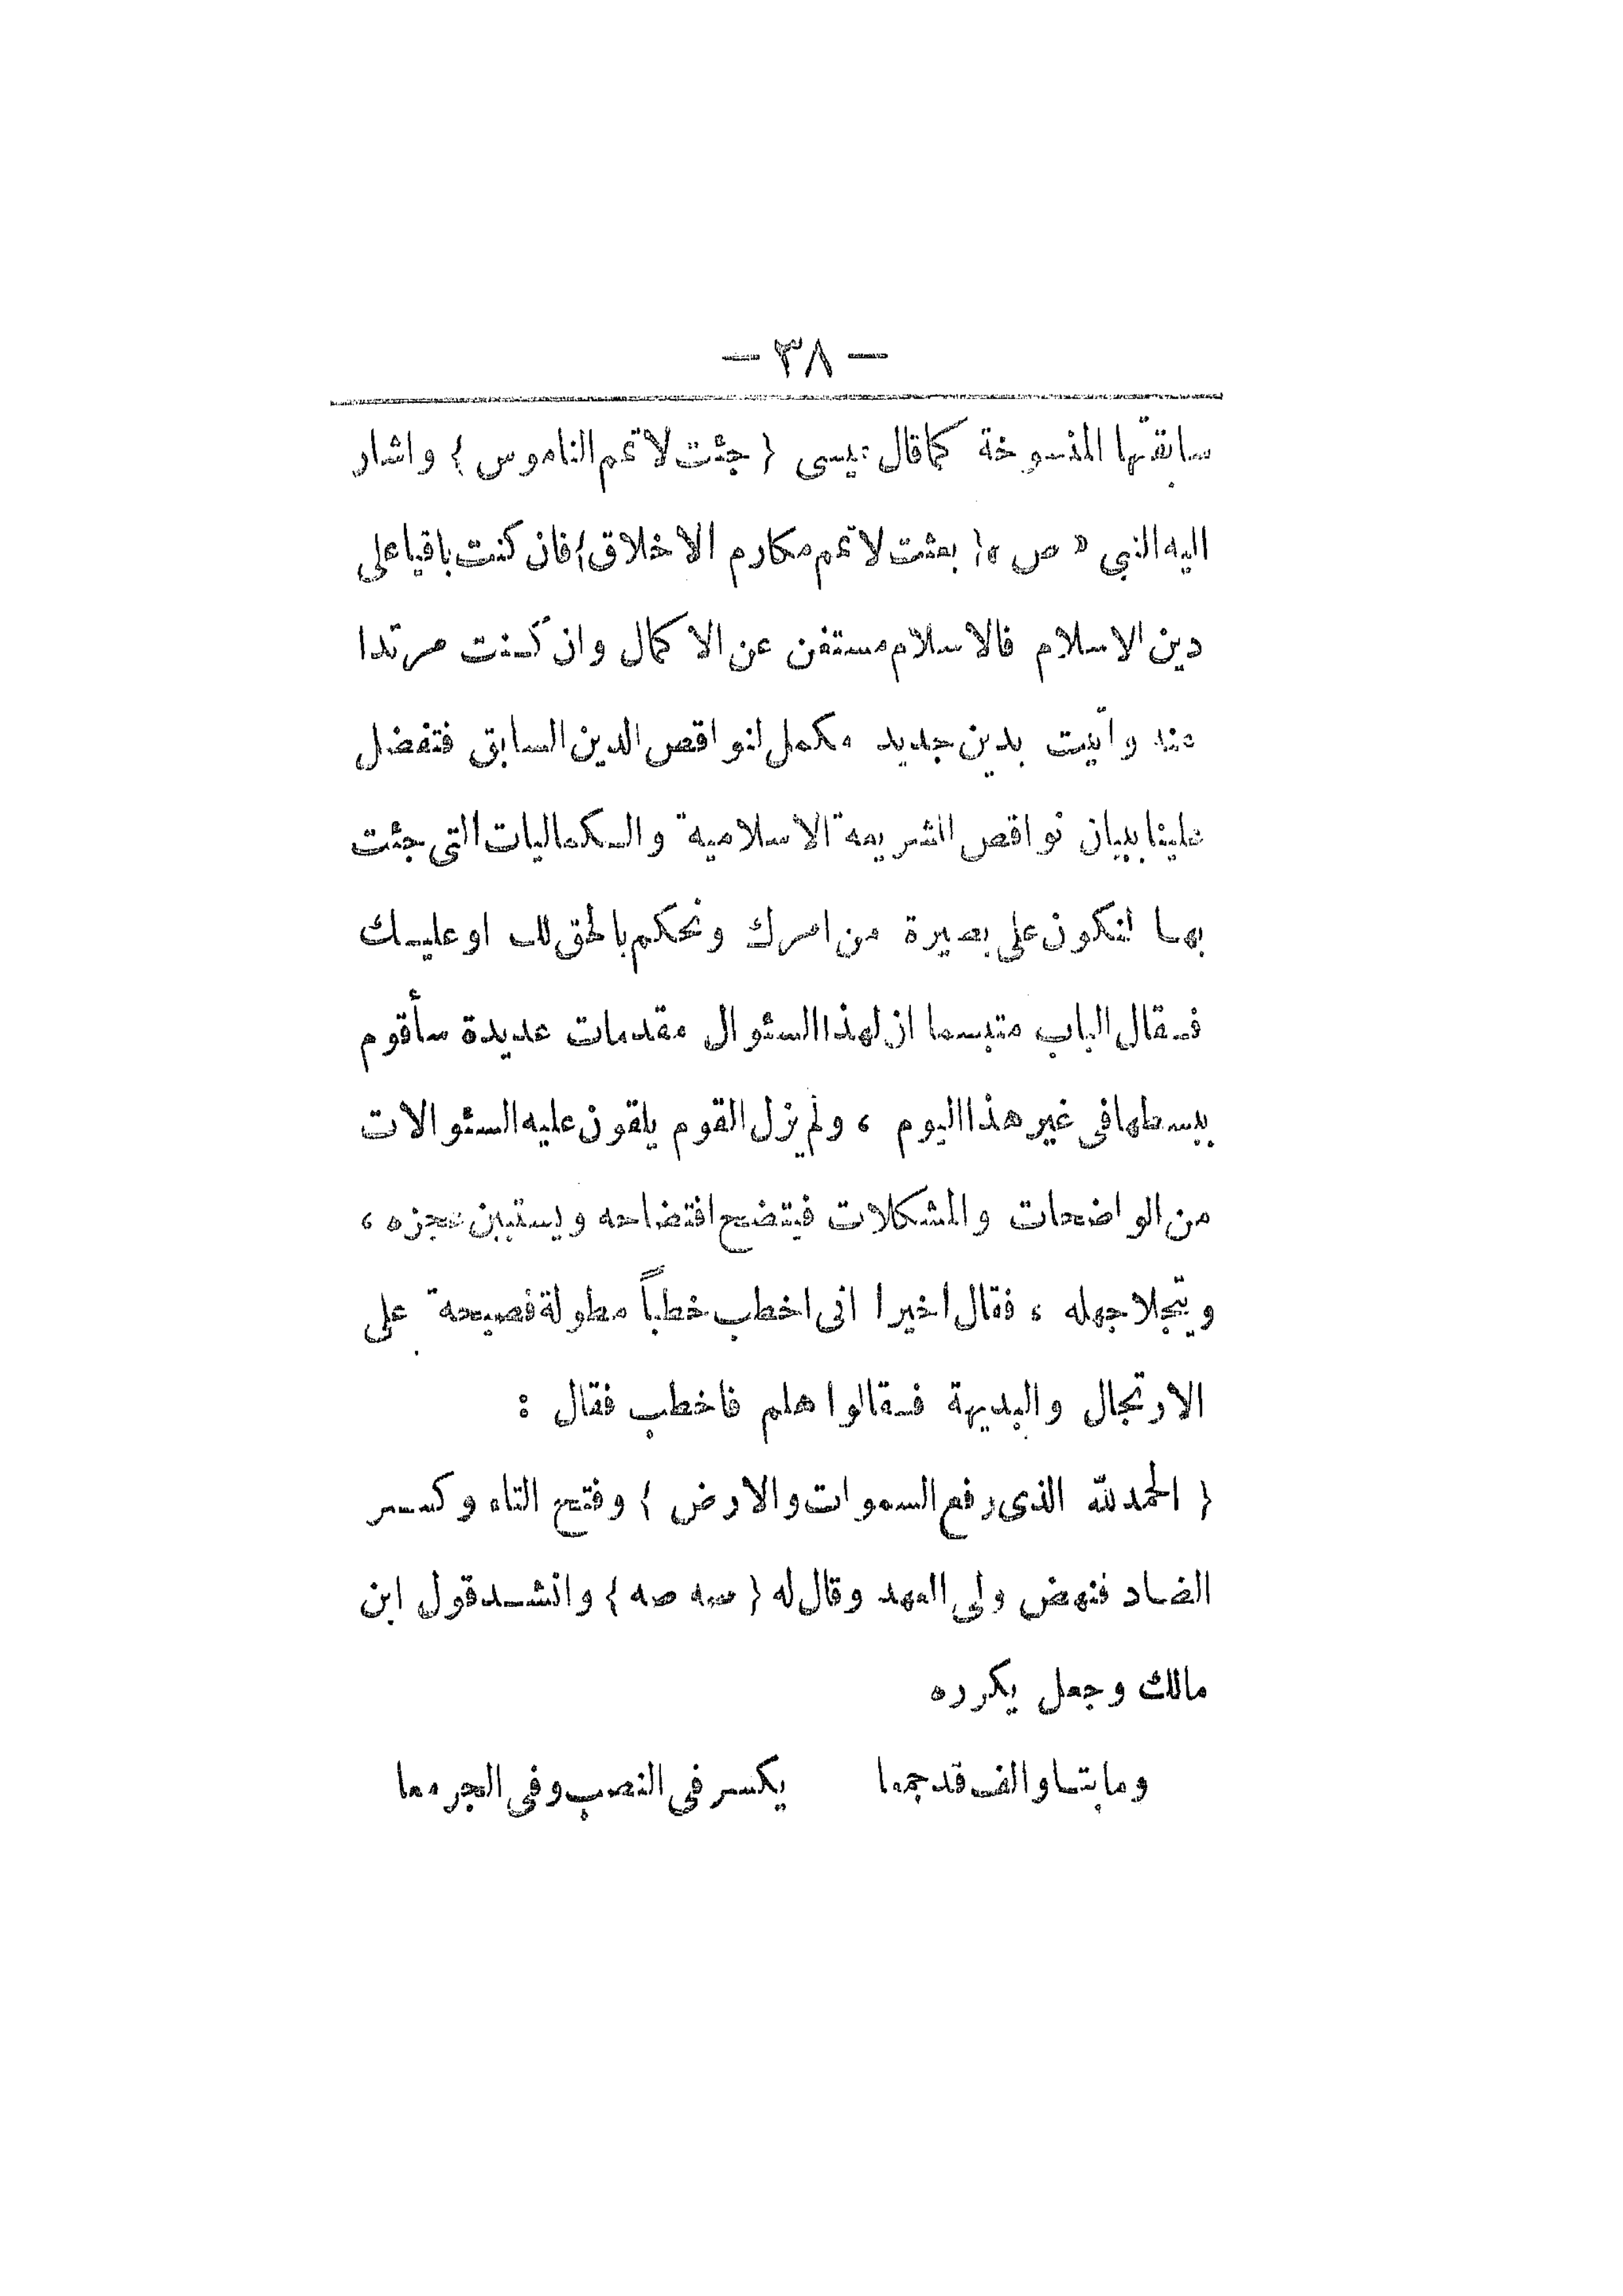 — ٣٨ —
سابقتها المنسوخة كما قال عيسى { جئت لاتمم الناموس } واشار
اليه النبي « ص » { بعثت لاتمم مكارم الاخلاق } فان كنت باقيا على
دين الاسلام فالاسلام مستغن عن الاكمال وان كنت مرتدا
منه واتيت بدين جديد مكمل لنواقص الدين السابق فتفضل
علينا ببيان نواقص الشريعة الاسلامية والكماليات التى جئت
بها لنكون على بصيرة من امرك ونحكم بالحق لك او عليك
فقال الباب متبسما ان لهذا السئوال مقدمات عديدة سأقوم
ببسطها فى غير هذا اليوم ، ولم يزل القوم يلقون عليه السئوالات
من الواضحات والمشكلات فيتضح افتضاحه ويستبين عجزه ،
ويتجلا جهله ، فقال اخيرا انى اخطب خطباً مطولة فصيحة على
الارتجال والبديهة فقالوا هلم فاخطب فقال :
{ الحمد لله الذى رفع السموات والارض } وفتح التاء وكسر
الضاد فنهض ولى العهد وقال له { صه صه } وانشد قول ابن
مالك وجعل يكرره
وما بتا والف قد جمعا     يكسر فى النصب وفى الجر معا